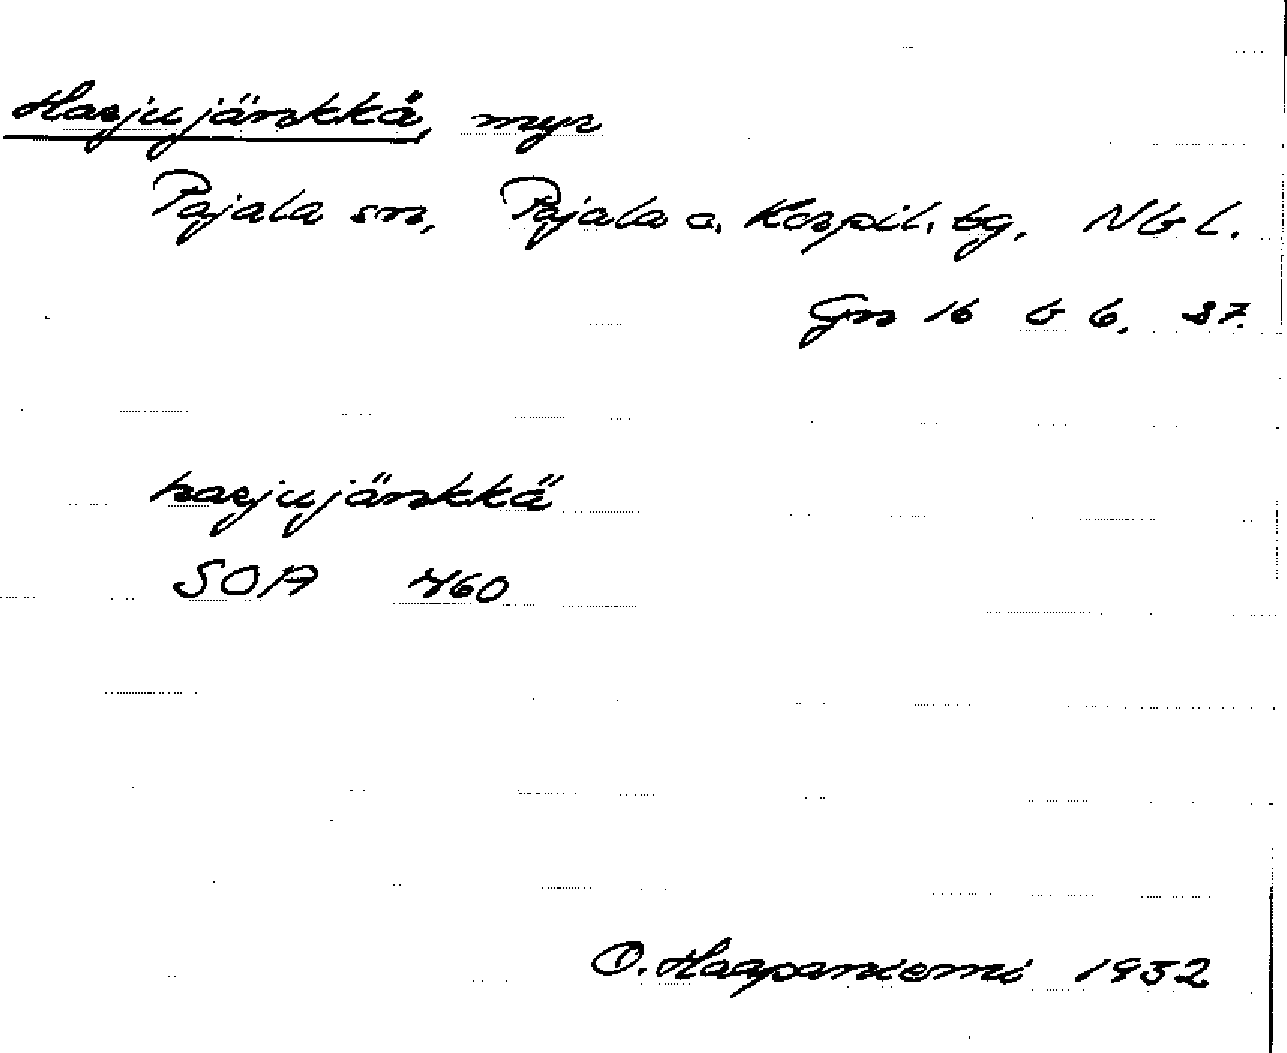 Harjujänkkä, myr
Pajala sn, Pajala o. Korpil. tg, Nb l.
Gn 16 b 6, 37.
harjujänkkä
SOA 460
O. Haapaniemi 1932